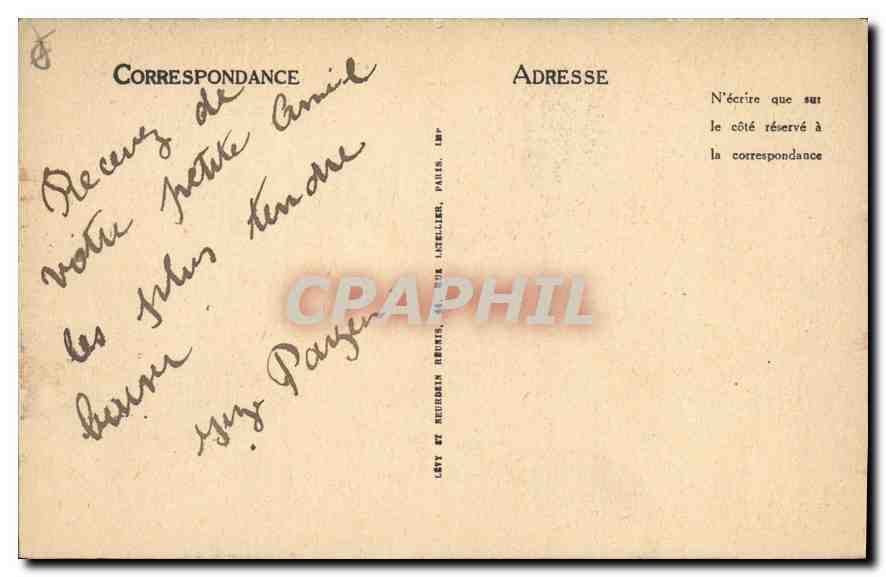 CORRESPONDANCE
ADRESSE
N'écrire que sur
le côté réservé à
la correspondance
Recevez de
votre petite Amie
les plus tendre
baiser
LÉVY ET NEURDEIN RÉUNIS, 44, RUE LETELLIER, PARIS. IMP
CPAPHIL